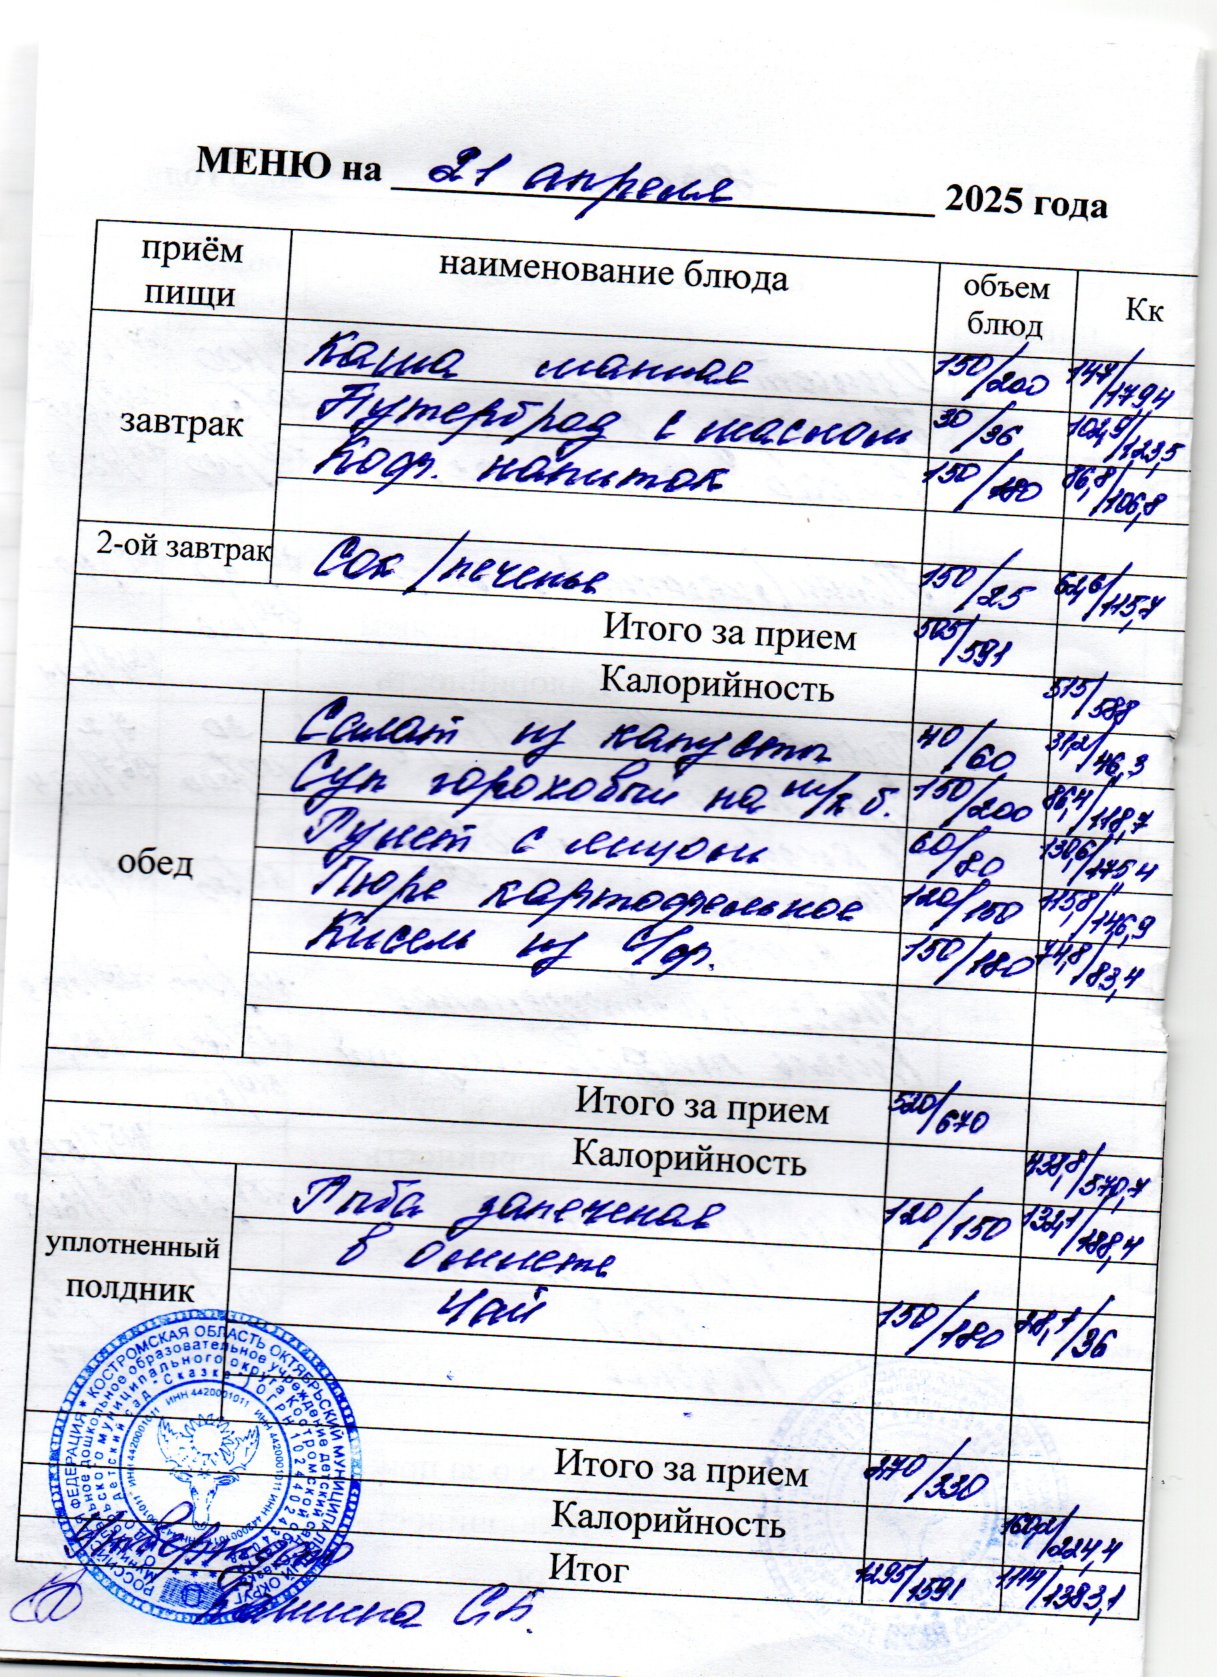 МЕНЮ на 21 апреля 2025 года
приём пищи наименование блюда объем блюд Кк
завтрак
Каша манная 150/200 147/179,4
Бутерброд с маслом 30/36 102,9/123,5
Коф. напиток 150/180 86,8/106,8
2-ой завтрак Сок/печенье 150/25 62,6/115,7
Итого за прием 505/591
Калорийность 515/588
обед
Салат из капусты 40/60 31,2/46,3
Суп гороховый на м/к б. 150/200 86,4/118,7
Рулет с яйцом 60/80 130,6/175,4
Пюре картофельное 120/150 115,8/146,9
Кисель из ч/ф. 150/180 74,8/83,4
Итого за прием 520/670
Калорийность 438,8/570,7
уплотненный полдник
Рыба запеченая 120/150 132,1/188,4
в омлете
Чай 150/180 28,1/36
Итого за прием 270/330
Калорийность 160,2/224,4
Итог 1295/1591 1114/1383,1
РОССИЙСКАЯ ФЕДЕРАЦИЯ * КОСТРОМСКАЯ ОБЛАСТЬ ОКТЯБРЬСКИЙ МУНИЦИПАЛЬНЫЙ ОКРУГ
ИНН 4420001011
С.А.